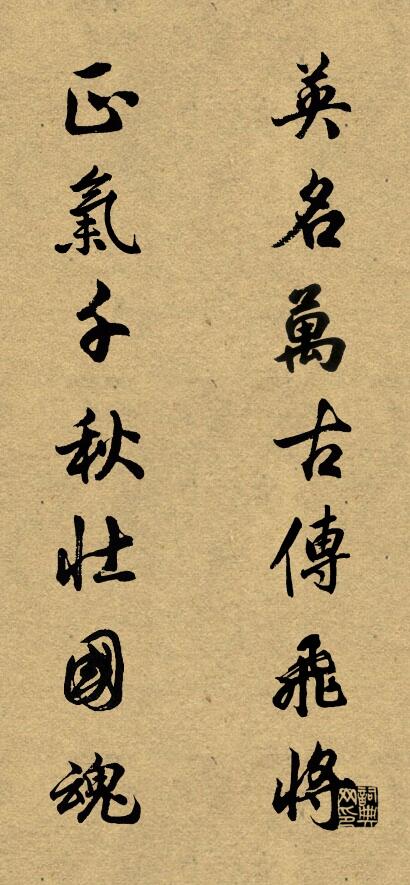 英名萬古傳飛將
正氣千秋壯國魂
詞典網印